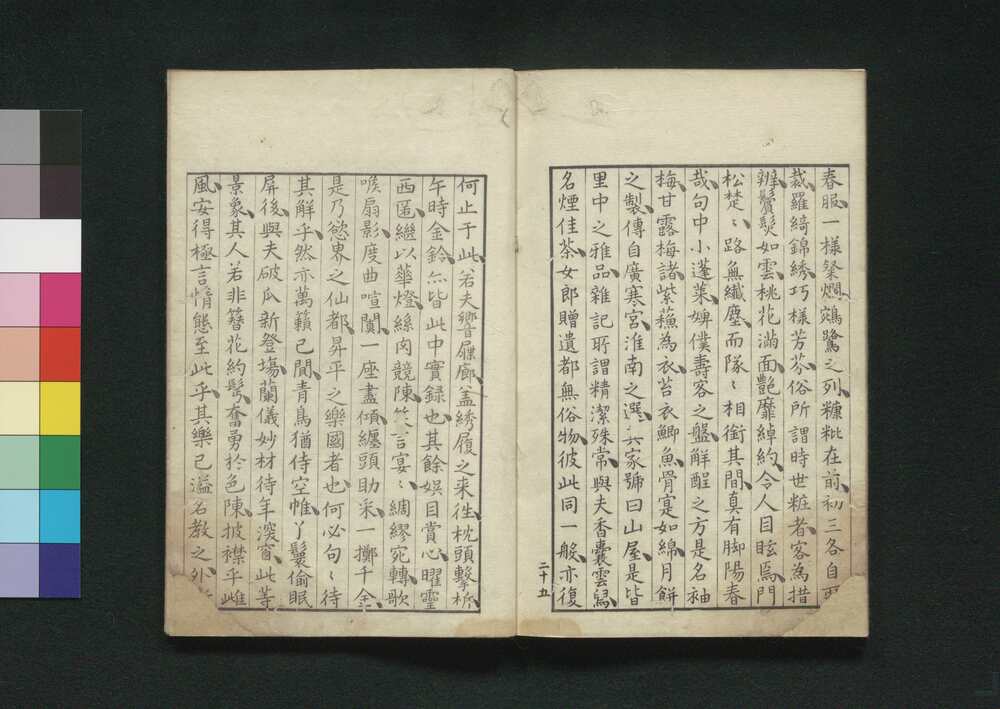 春服一樣粲爛鵷鷺之列糠粃在前初三各自
裁羅綺錦綉巧樣芳芬俗所謂時世粧者客為措
辦鬢髮如雲桃花滿面艷靡綽約令人目眩焉門
松楚〻路無纖塵而隊〻相銜其間真有脚陽春
哉句中小蓬萊婢僕壽客之盤解酲之方是名袖
梅甘露梅諸紫蘓為衣苔衣鯽魚骨寔如綿月餅
之製傳自廣寒宮淮南之選其家號曰山屋是皆
里中之雅品雜記所謂精潔殊常與夫香囊雲舃
名煙佳茶女郎贈遺都無俗物彼此同一般亦復
二十五
何止于此若夫響屧廊盖綉履之来往枕頭擊柝
午時金鈴亦皆此中實録也其餘娯目賞心曜靈
西匿繼以華燈絲肉競陳笑言宴〻綢繆宛轉歌
喉扇影度曲喧闐一座盡傾纏頭助采一擲千金
是乃慾界之仙都昇平之樂國者也何必句〻待
其解乎然亦萬籟已閴青鳥猶侍空帷丫鬟偷眠
屏後與夫破瓜新登塲蘭儀妙材待年深窗此等
景象其人若非簪花約鬂奮勇於色陳披襟乎雌
風安得極言情態至此乎其樂已溢名教之外